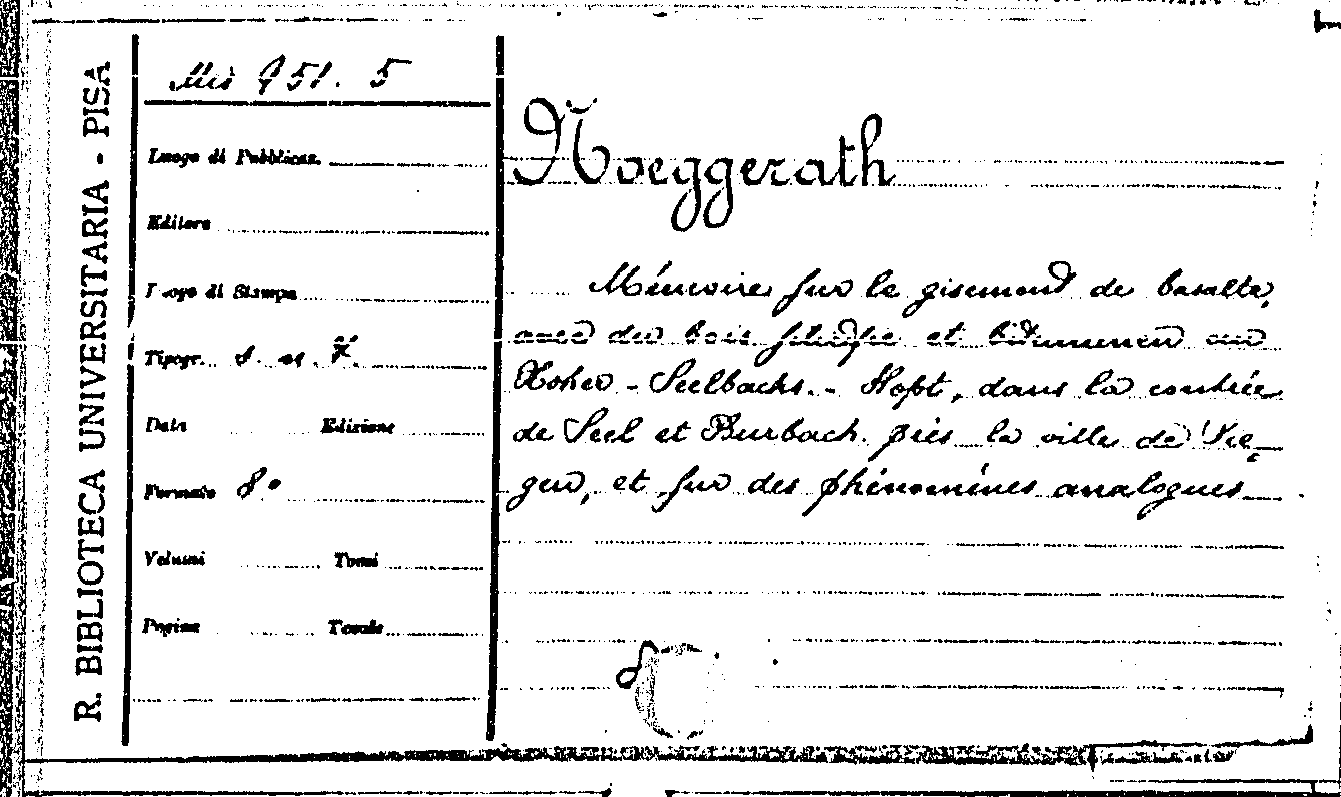 R. BIBLIOTECA UNIVERSITARIA - PISA
Mis 951. 5
Luogo di Pubblicaz.
Editore
Luogo di Stampa
Tipogr. s. n. T.
Data Edizione
Formato 8°
Volumi Tomi
Pagine Tavole
Noeggerath
Mémoire sur le gisement de basalte,
avec du bois pétrifié et bitumineux au
Hoher - Seelbachs. - Kopt, dans la contrée
de Seel et Burbach. près la ville de Sie-
gen, et sur des phénomènes analogues